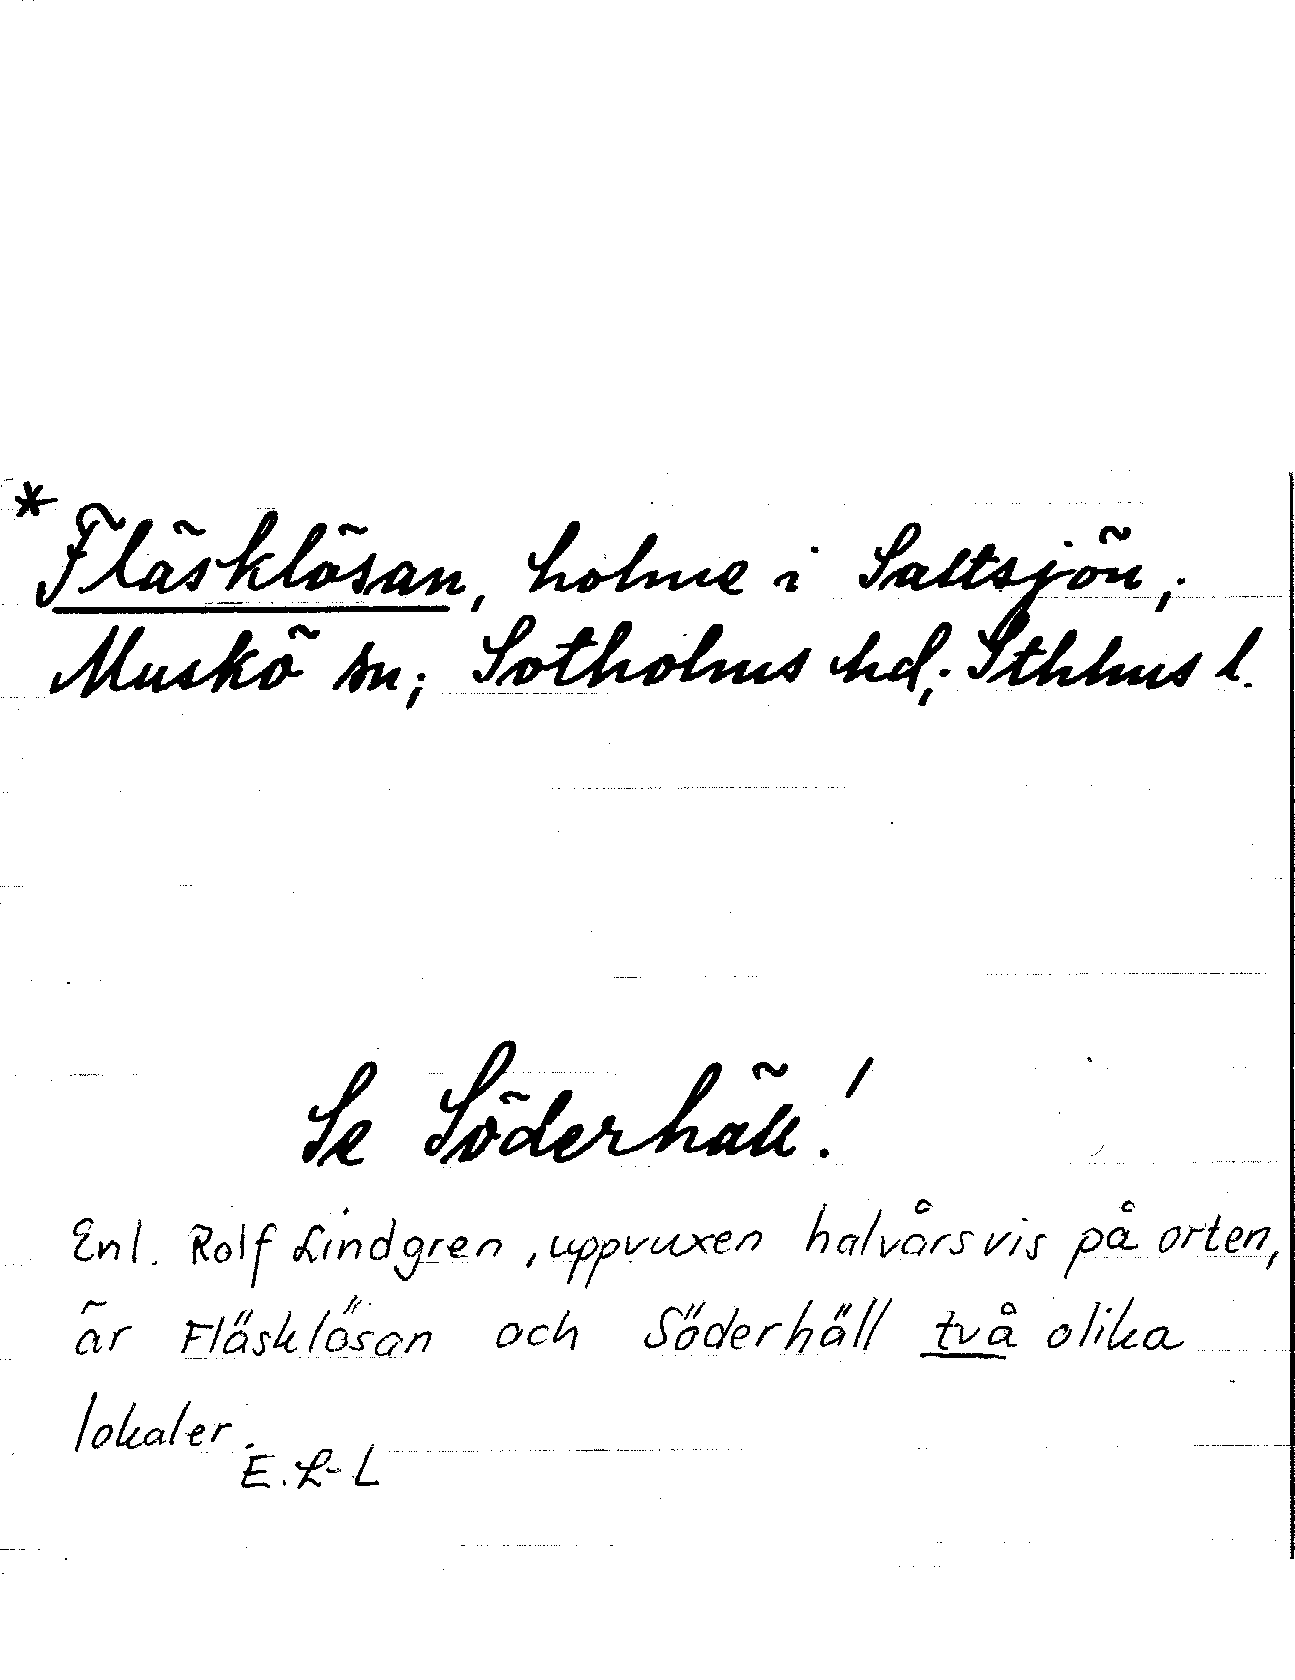 * Fläsklösan, holme i Saltsjön,
Muskö sn; Sotholms hd; Sthlms l.
Se Söderhäll!
Enl. Rolf Lindgren, uppvuxen halvårsvis på orten,
är Fläsklösan och Söderhäll två olika
lokaler.
E. L-L